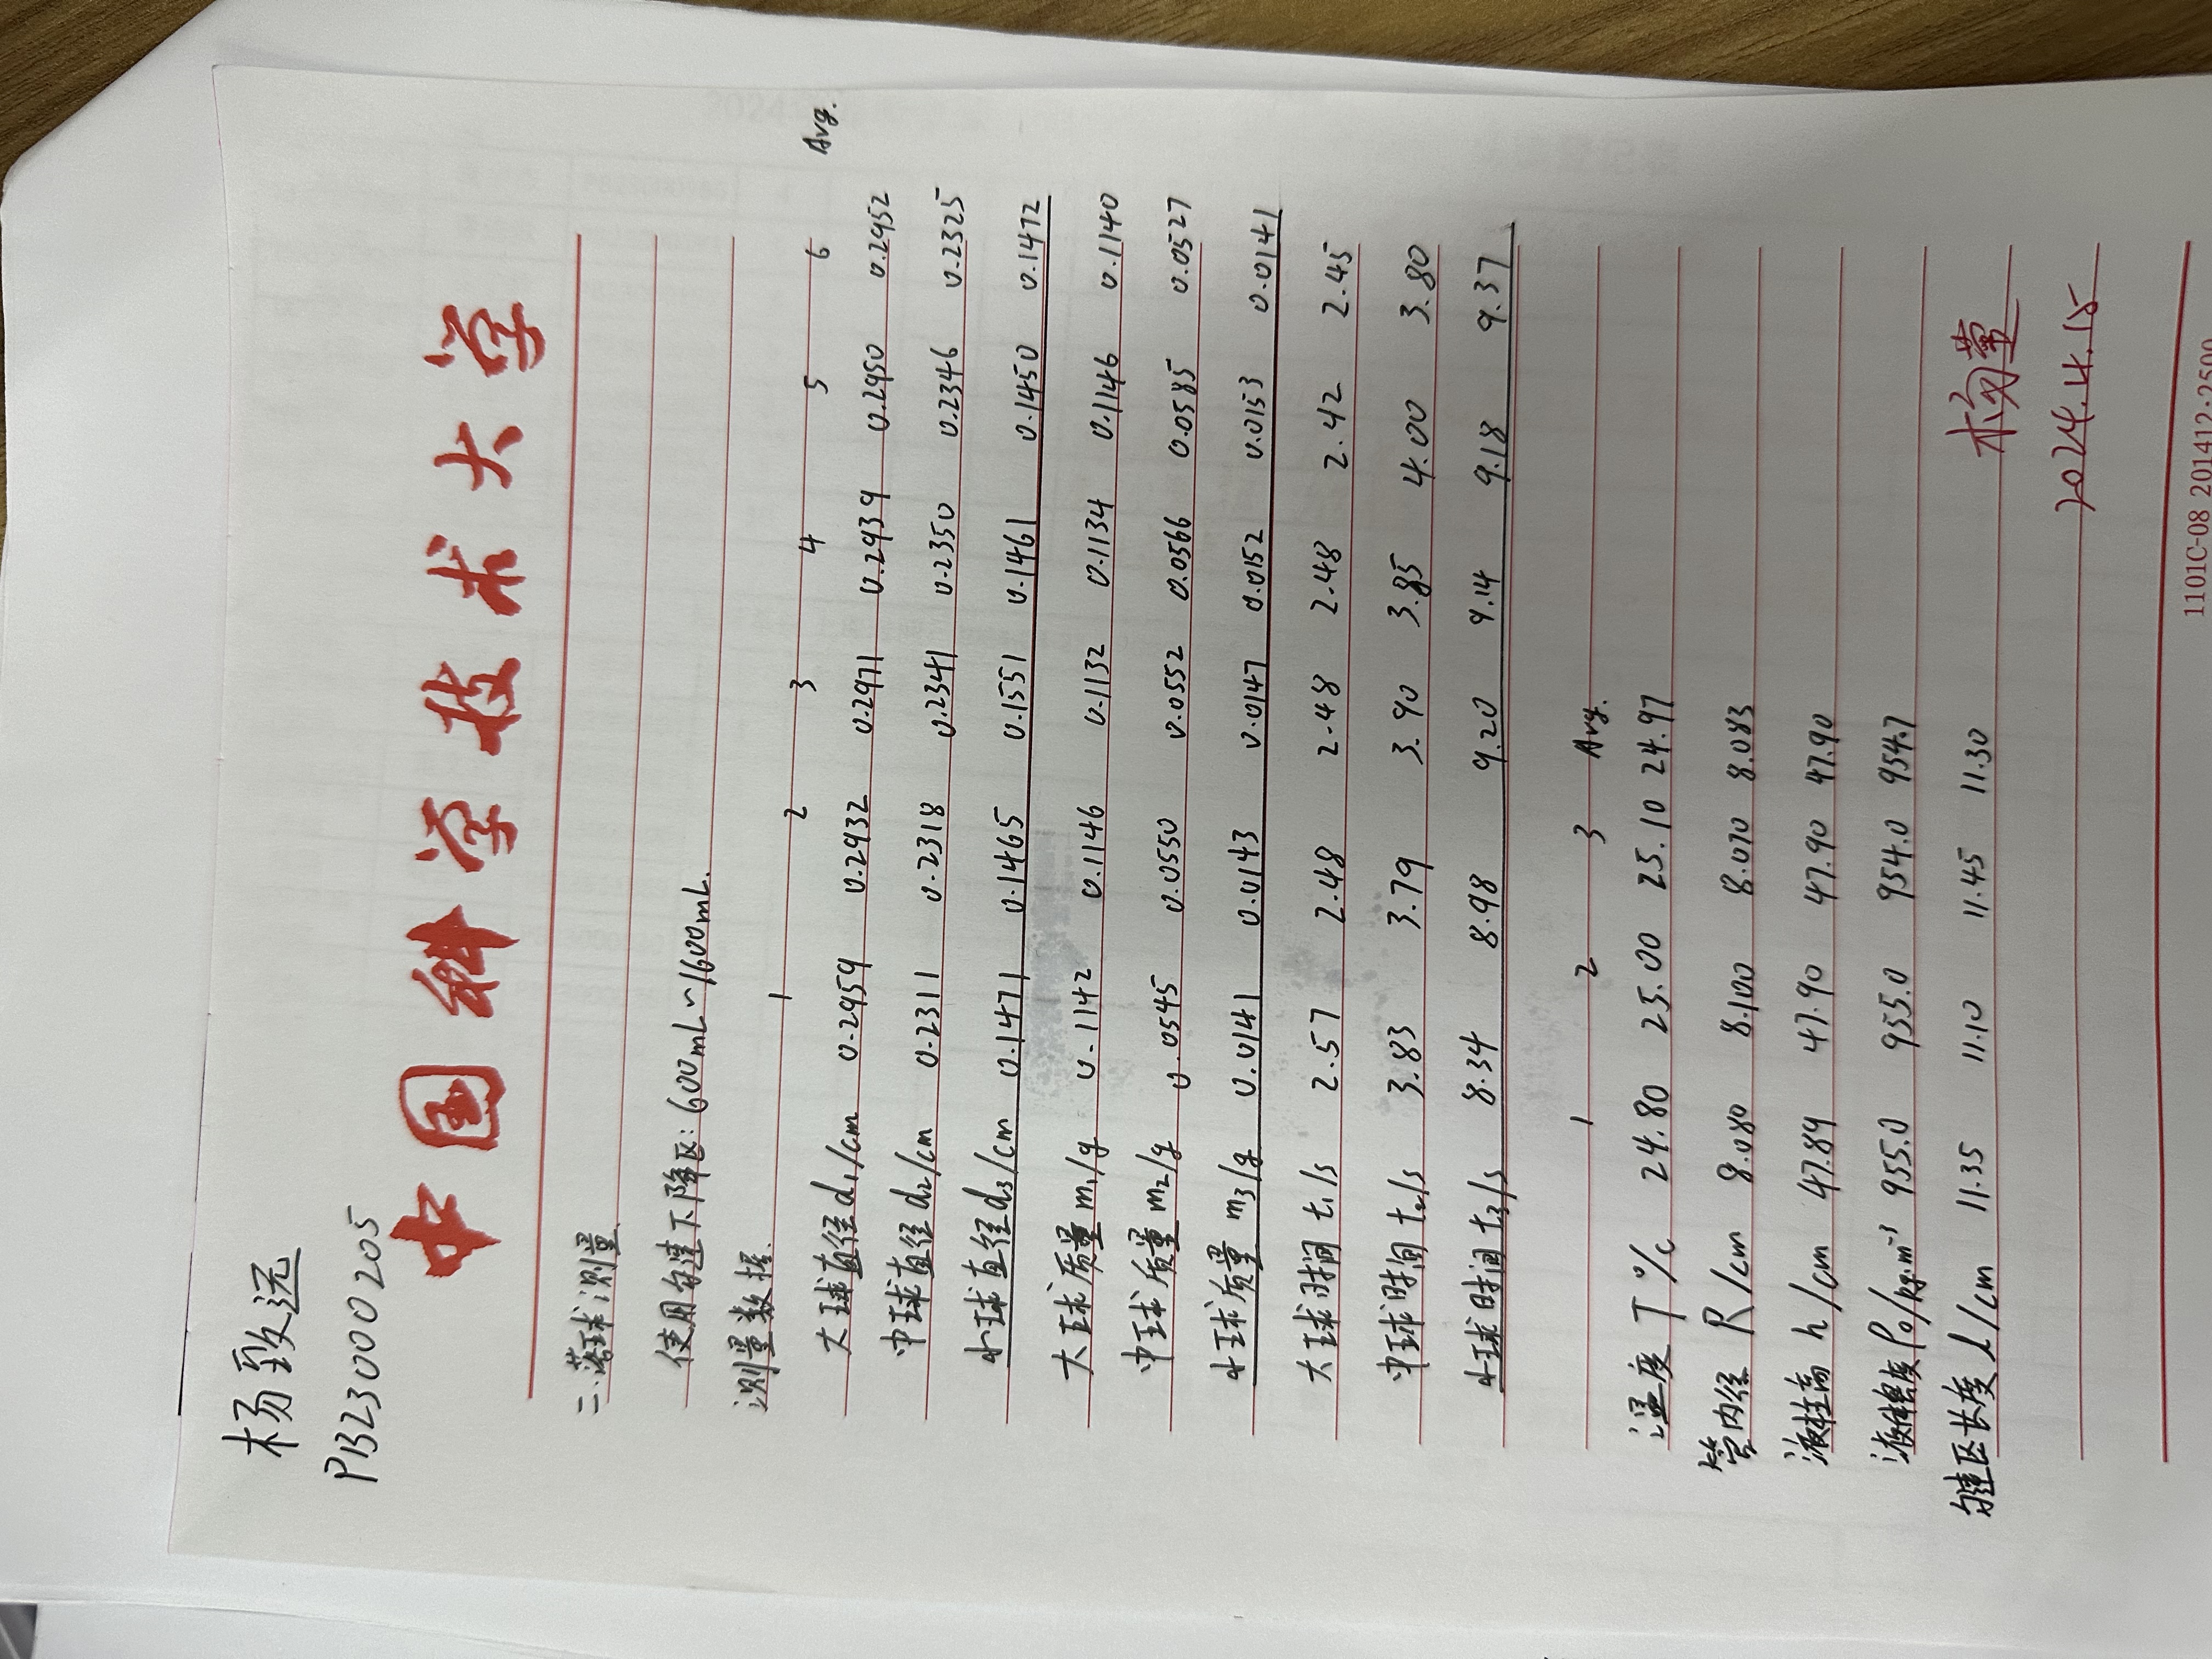 杨致远
PB23000205
中国科学技术大学
二.落球测量
使用匀速下降区: 600mL~1600mL.
测量数据.
1 2 3 4 5 6 Avg.
大球直径d₁/cm 0.2959 0.2932 0.2971 0.2939 0.2950 0.2952
中球直径d₂/cm 0.2311 0.2318 0.2341 0.2350 0.2346 0.2325
小球直径d₃/cm 0.1471 0.1465 0.1551 0.1461 0.1450 0.1472
大球质量m₁/g 0.1142 0.1146 0.1132 0.1134 0.1146 0.1140
中球质量m₂/g 0.0545 0.0550 0.0552 0.0566 0.0585 0.0527
小球质量 m₃/g 0.0141 0.0143 0.0147 0.0152 0.0153 0.0141
大球时间 t₁/s 2.57 2.48 2.48 2.48 2.42 2.45
中球时间 t₂/s 3.83 3.79 3.90 3.85 4.00 3.80
小球时间 t₃/s 8.34 8.98 9.20 9.14 9.18 9.37
1 2 3 Avg.
温度 T °/c 24.80 25.00 25.10 24.97
管内径 R/cm 8.080 8.100 8.070 8.083
液柱高 h/cm 47.89 47.90 47.90 47.90
液体密度 ρ₀/kg·m⁻³ 955.0 955.0 954.0 954.7
匀速区长度 l/cm 11.35 11.10 11.45 11.30
2024.4.15
1101C-08 201412·2500